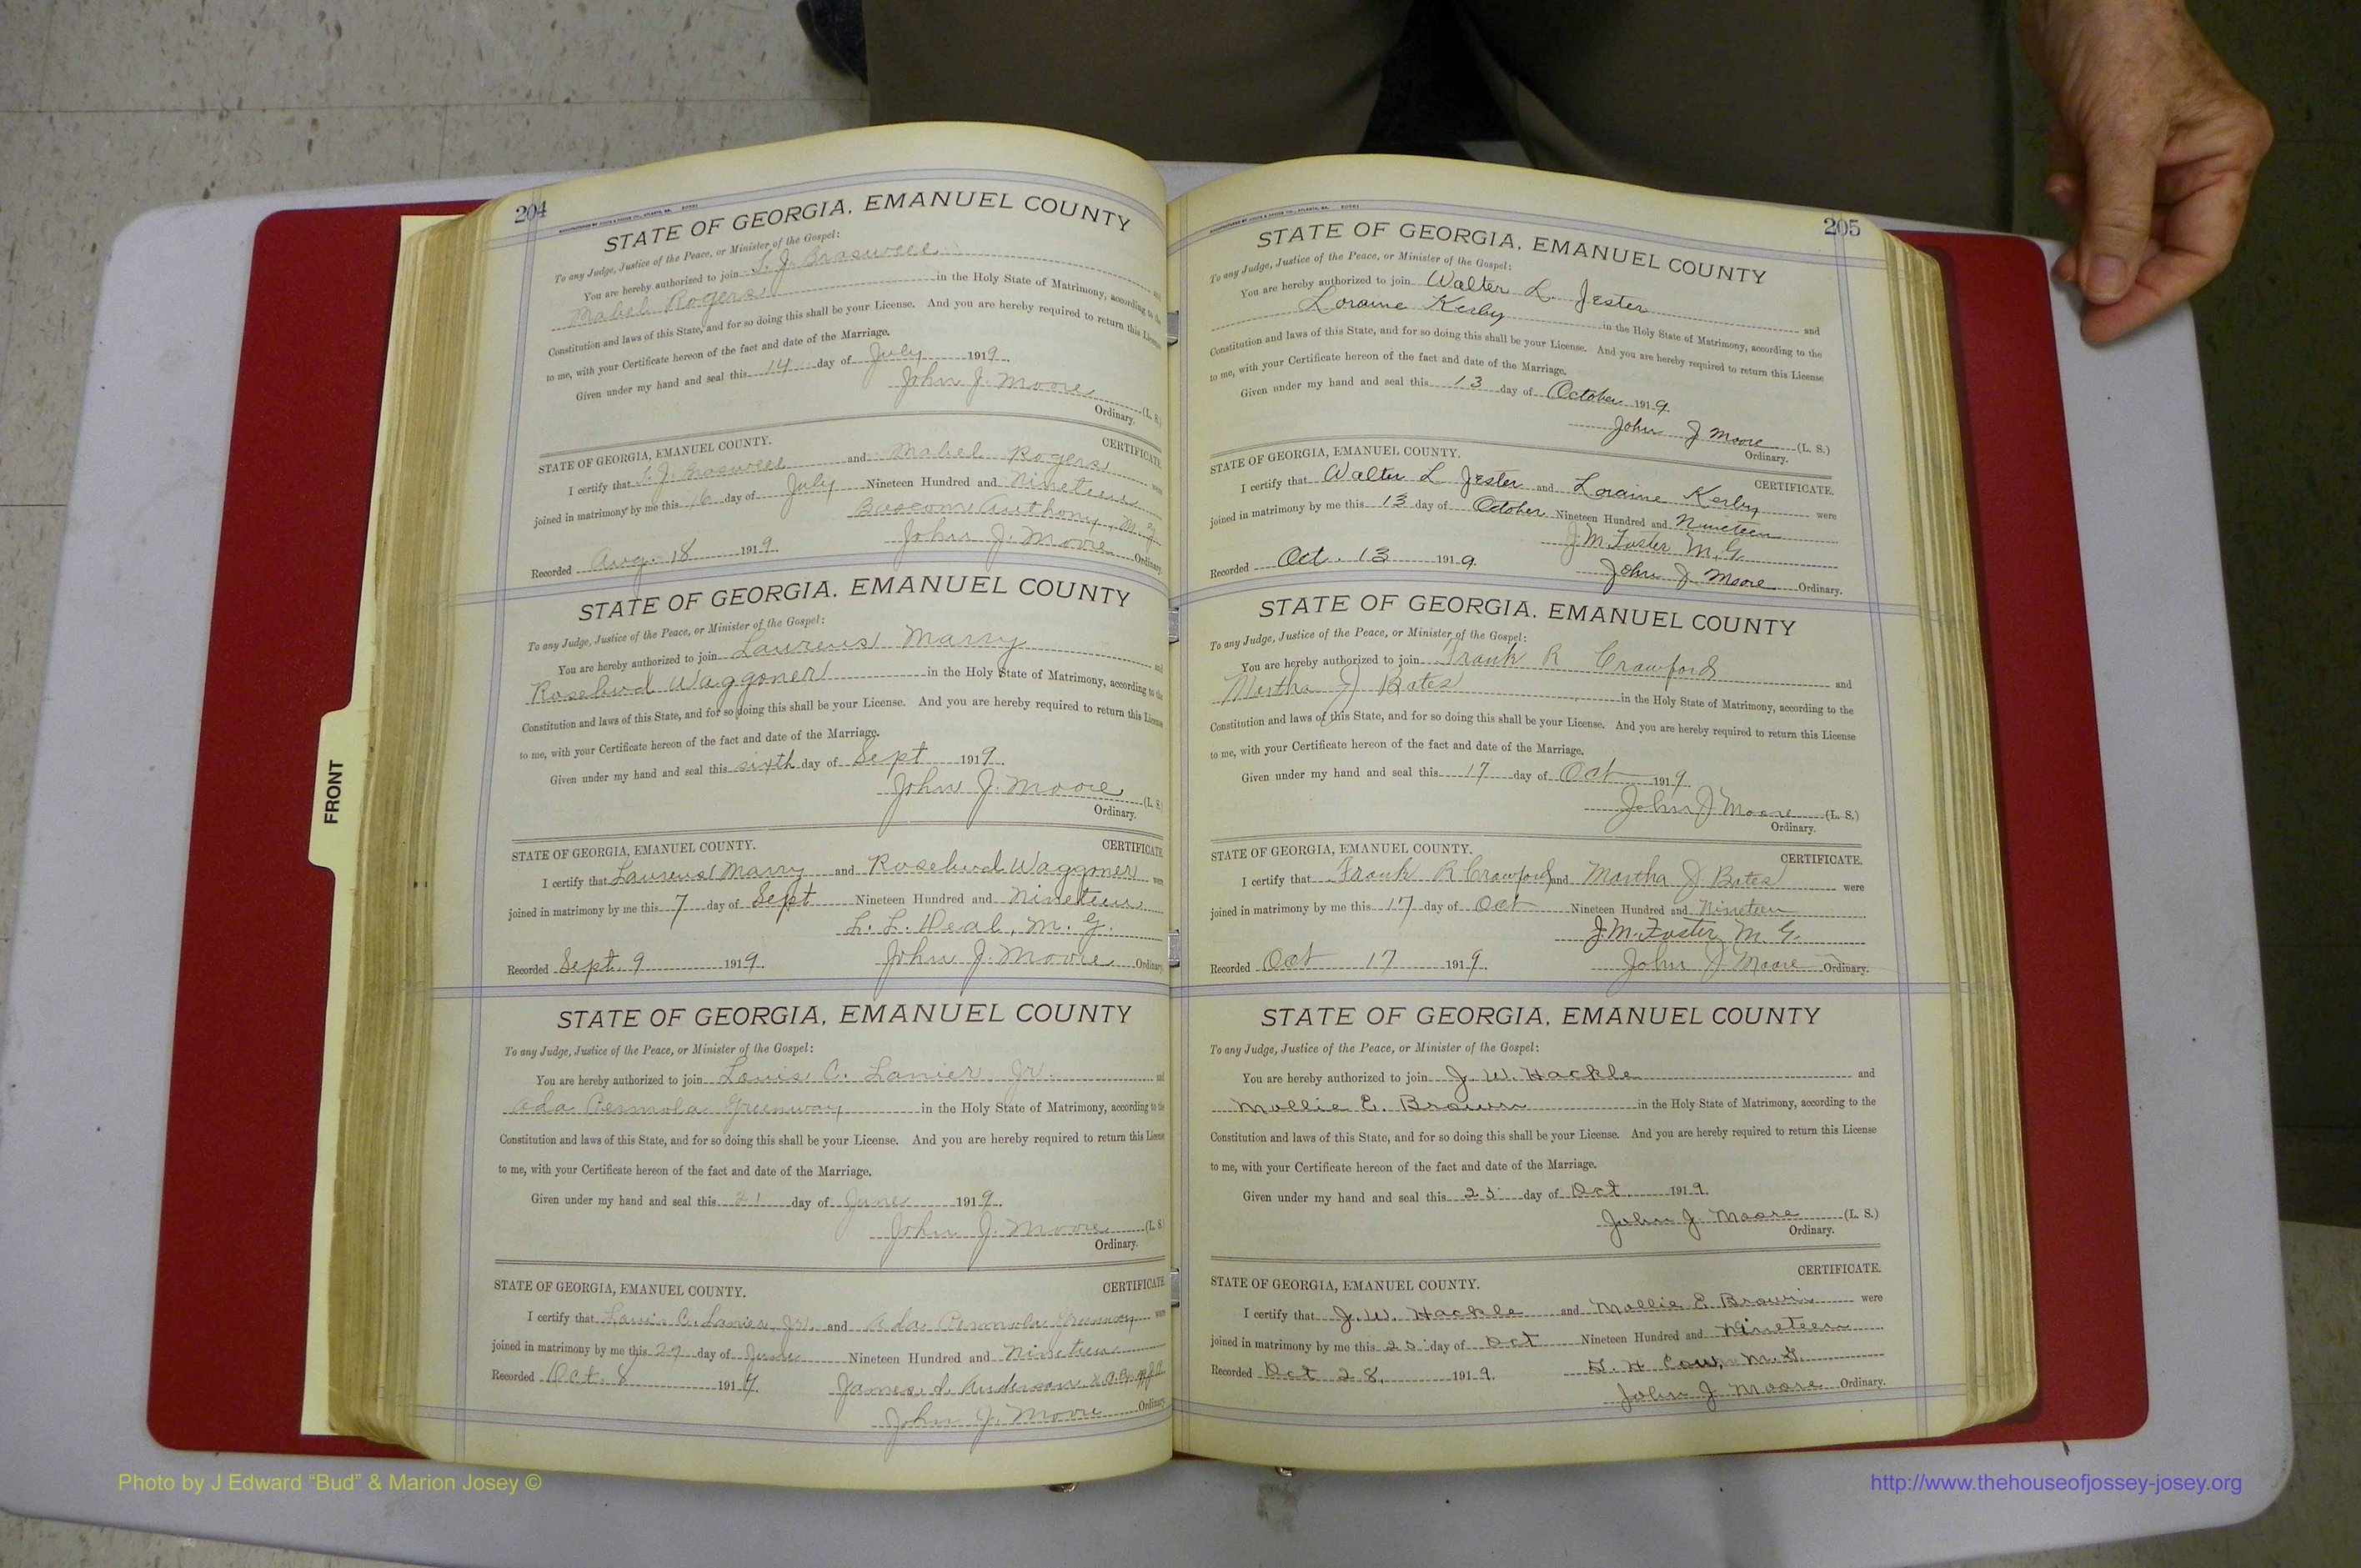 204
STATE OF GEORGIA, EMANUEL COUNTY
To any Judge, Justice of the Peace, or Minister of the Gospel:
You are hereby authorized to join J. Braswell and
Mabel Rogers in the Holy State of Matrimony, according to the
Constitution and laws of this State, and for so doing this shall be your License. And you are hereby required to return this License
to me, with your Certificate hereon of the fact and date of the Marriage.
Given under my hand and seal this 14 day of July 1919.
John J. Moore (L. S.)
Ordinary.
STATE OF GEORGIA, EMANUEL COUNTY. CERTIFICATE
I certify that J. Braswell and Mabel Rogers were
joined in matrimony by me this 16 day of July Nineteen Hundred and Nineteen
Bascom Anthony, M. G.
Recorded Aug. 18 1919. John J. Moore Ordinary.
STATE OF GEORGIA, EMANUEL COUNTY
To any Judge, Justice of the Peace, or Minister of the Gospel:
You are hereby authorized to join Laurens Marry and
Rosebud Waggoner in the Holy State of Matrimony, according to the
Constitution and laws of this State, and for so doing this shall be your License. And you are hereby required to return this License
to me, with your Certificate hereon of the fact and date of the Marriage.
Given under my hand and seal this sixth day of Sept 1919.
John J. Moore (L. S.
Ordinary.
STATE OF GEORGIA, EMANUEL COUNTY. CERTIFICATE
I certify that Laurens Marry and Rosebud Waggoner were
joined in matrimony by me this 7 day of Sept Nineteen Hundred and Nineteen
L. L. Deal, M. G.
Recorded Sept. 9 1919. John J. Moore Ordinary
STATE OF GEORGIA, EMANUEL COUNTY
To any Judge, Justice of the Peace, or Minister of the Gospel:
You are hereby authorized to join Louis C. Lanier, Jr. and
Ada Greenway in the Holy State of Matrimony, according to the
Constitution and laws of this State, and for so doing this shall be your License. And you are hereby required to return this License
to me, with your Certificate hereon of the fact and date of the Marriage.
Given under my hand and seal this 21 day of June 1919.
John J. Moore (L. S
Ordinary.
STATE OF GEORGIA, EMANUEL COUNTY. CERTIFICATE
I certify that Louis C. Lanier, Jr. and Ada Greenway were
joined in matrimony by me this day of June Nineteen Hundred and Nineteen
Recorded Oct. 8 1919. James Anderson
John J. Moore Ordinary
205
STATE OF GEORGIA, EMANUEL COUNTY
To any Judge, Justice of the Peace, or Minister of the Gospel:
You are hereby authorized to join Walter L. Jester and
Loraine Kerby in the Holy State of Matrimony, according to the
Constitution and laws of this State, and for so doing this shall be your License. And you are hereby required to return this License
to me, with your Certificate hereon of the fact and date of the Marriage.
Given under my hand and seal this 13 day of October 1919.
John J Moore (L. S.)
Ordinary.
STATE OF GEORGIA, EMANUEL COUNTY. CERTIFICATE.
I certify that Walter L Jester and Loraine Kerby were
joined in matrimony by me this 13 day of October Nineteen Hundred and Nineteen
J. M. Foster M. G.
Recorded Oct. 13 1919. John J Moore Ordinary.
STATE OF GEORGIA, EMANUEL COUNTY
To any Judge, Justice of the Peace, or Minister of the Gospel:
You are hereby authorized to join Frank R Crawford and
Martha J Bates in the Holy State of Matrimony, according to the
Constitution and laws of this State, and for so doing this shall be your License. And you are hereby required to return this License
to me, with your Certificate hereon of the fact and date of the Marriage.
Given under my hand and seal this 17 day of Oct 1919.
John J Moore (L. S.)
Ordinary.
STATE OF GEORGIA, EMANUEL COUNTY. CERTIFICATE.
I certify that Frank R Crawford and Martha J Bates were
joined in matrimony by me this 17 day of Oct Nineteen Hundred and Nineteen
J. M. Foster M. G.
Recorded Oct 17 1919. John J Moore Ordinary.
STATE OF GEORGIA, EMANUEL COUNTY
To any Judge, Justice of the Peace, or Minister of the Gospel:
You are hereby authorized to join J. W. Hackle and
Mollie E. Brown in the Holy State of Matrimony, according to the
Constitution and laws of this State, and for so doing this shall be your License. And you are hereby required to return this License
to me, with your Certificate hereon of the fact and date of the Marriage.
Given under my hand and seal this 25 day of Oct 1919.
John J Moore (L. S.)
Ordinary.
STATE OF GEORGIA, EMANUEL COUNTY. CERTIFICATE.
I certify that J. W. Hackle and Mollie E Brown were
joined in matrimony by me this 25 day of Oct Nineteen Hundred and Nineteen
M. G.
Recorded Oct 28, 1919. John J Moore Ordinary.
FRONT
Photo by J Edward “Bud” & Marion Josey ©
http://www.thehouseofjossey-josey.org